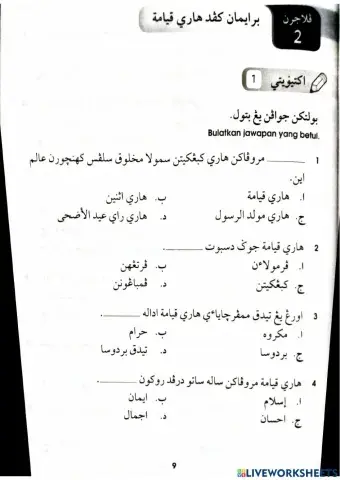 ڤلاجرن
2
برايمان كڤد هاري قيامة
اکتيۏيتي 1
بولتكن جواڤن يڠ بتول.
Bulatkan jawapan yang betul.
1 ________ مروڤاكن هاري كبڠكيتن سمولا مخلوق سلڤس كهنچورن عالم
اين.
ا. هاري قيامة ب. هاري اثنين
ج. هاري مولد الرسول د. هاري راي عيد الأضحى
2 هاري قيامة جوݢ دسبوت ________.
ا. ڤرمولاءن ب. ڤرتڠهن
ج. كبڠكيتن د. ڤمباڠونن
3 اورڠ يڠ تيدق ممڤرچاياءي هاري قيامة اداله ________.
ا. مكروه ب. حرام
ج. بردوسا د. تيدق بردوسا
4 هاري قيامة مروڤاكن ساله ساتو درڤد روكون ________.
ا. إسلام ب. ايمان
ج. احسان د. اجمال
9
LIVEWORKSHEETS